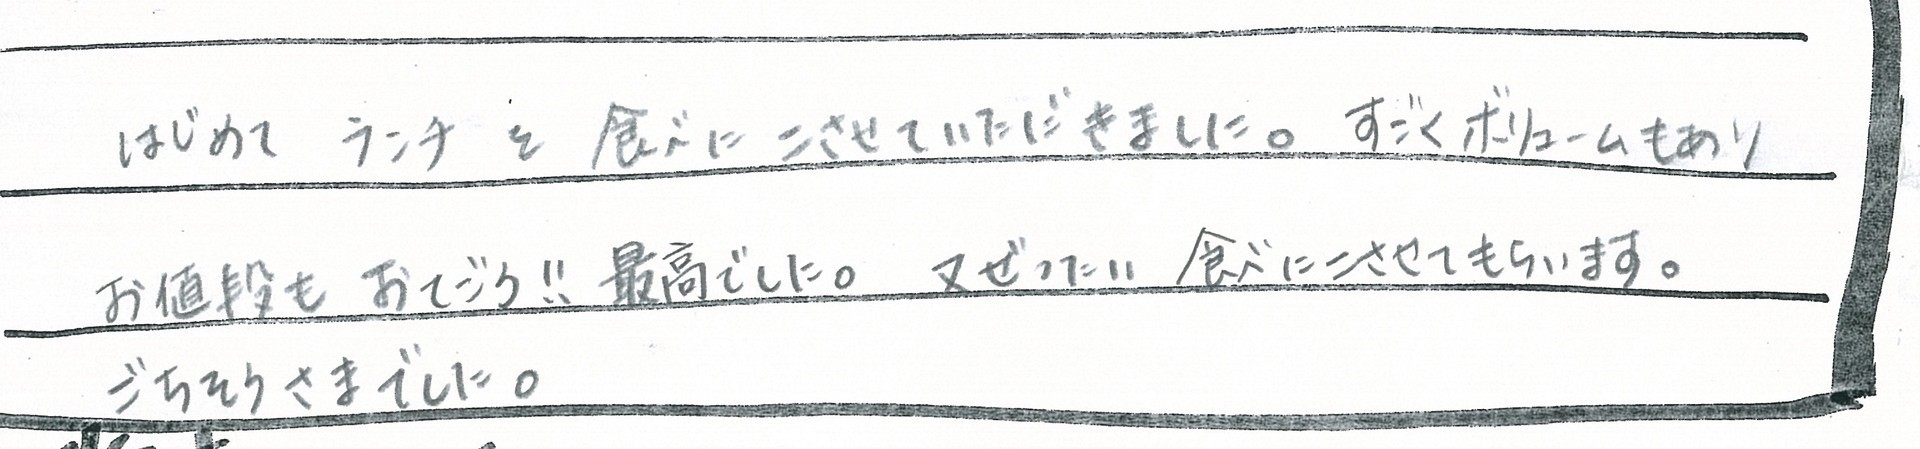 はじめて ランチ を 食べにこさせていただきました。 すごくボリュームもあり
お値段も おてごろ!! 最高でした。 又ぜったい 食べにこさせてもらいます。
ごちそうさまでした。